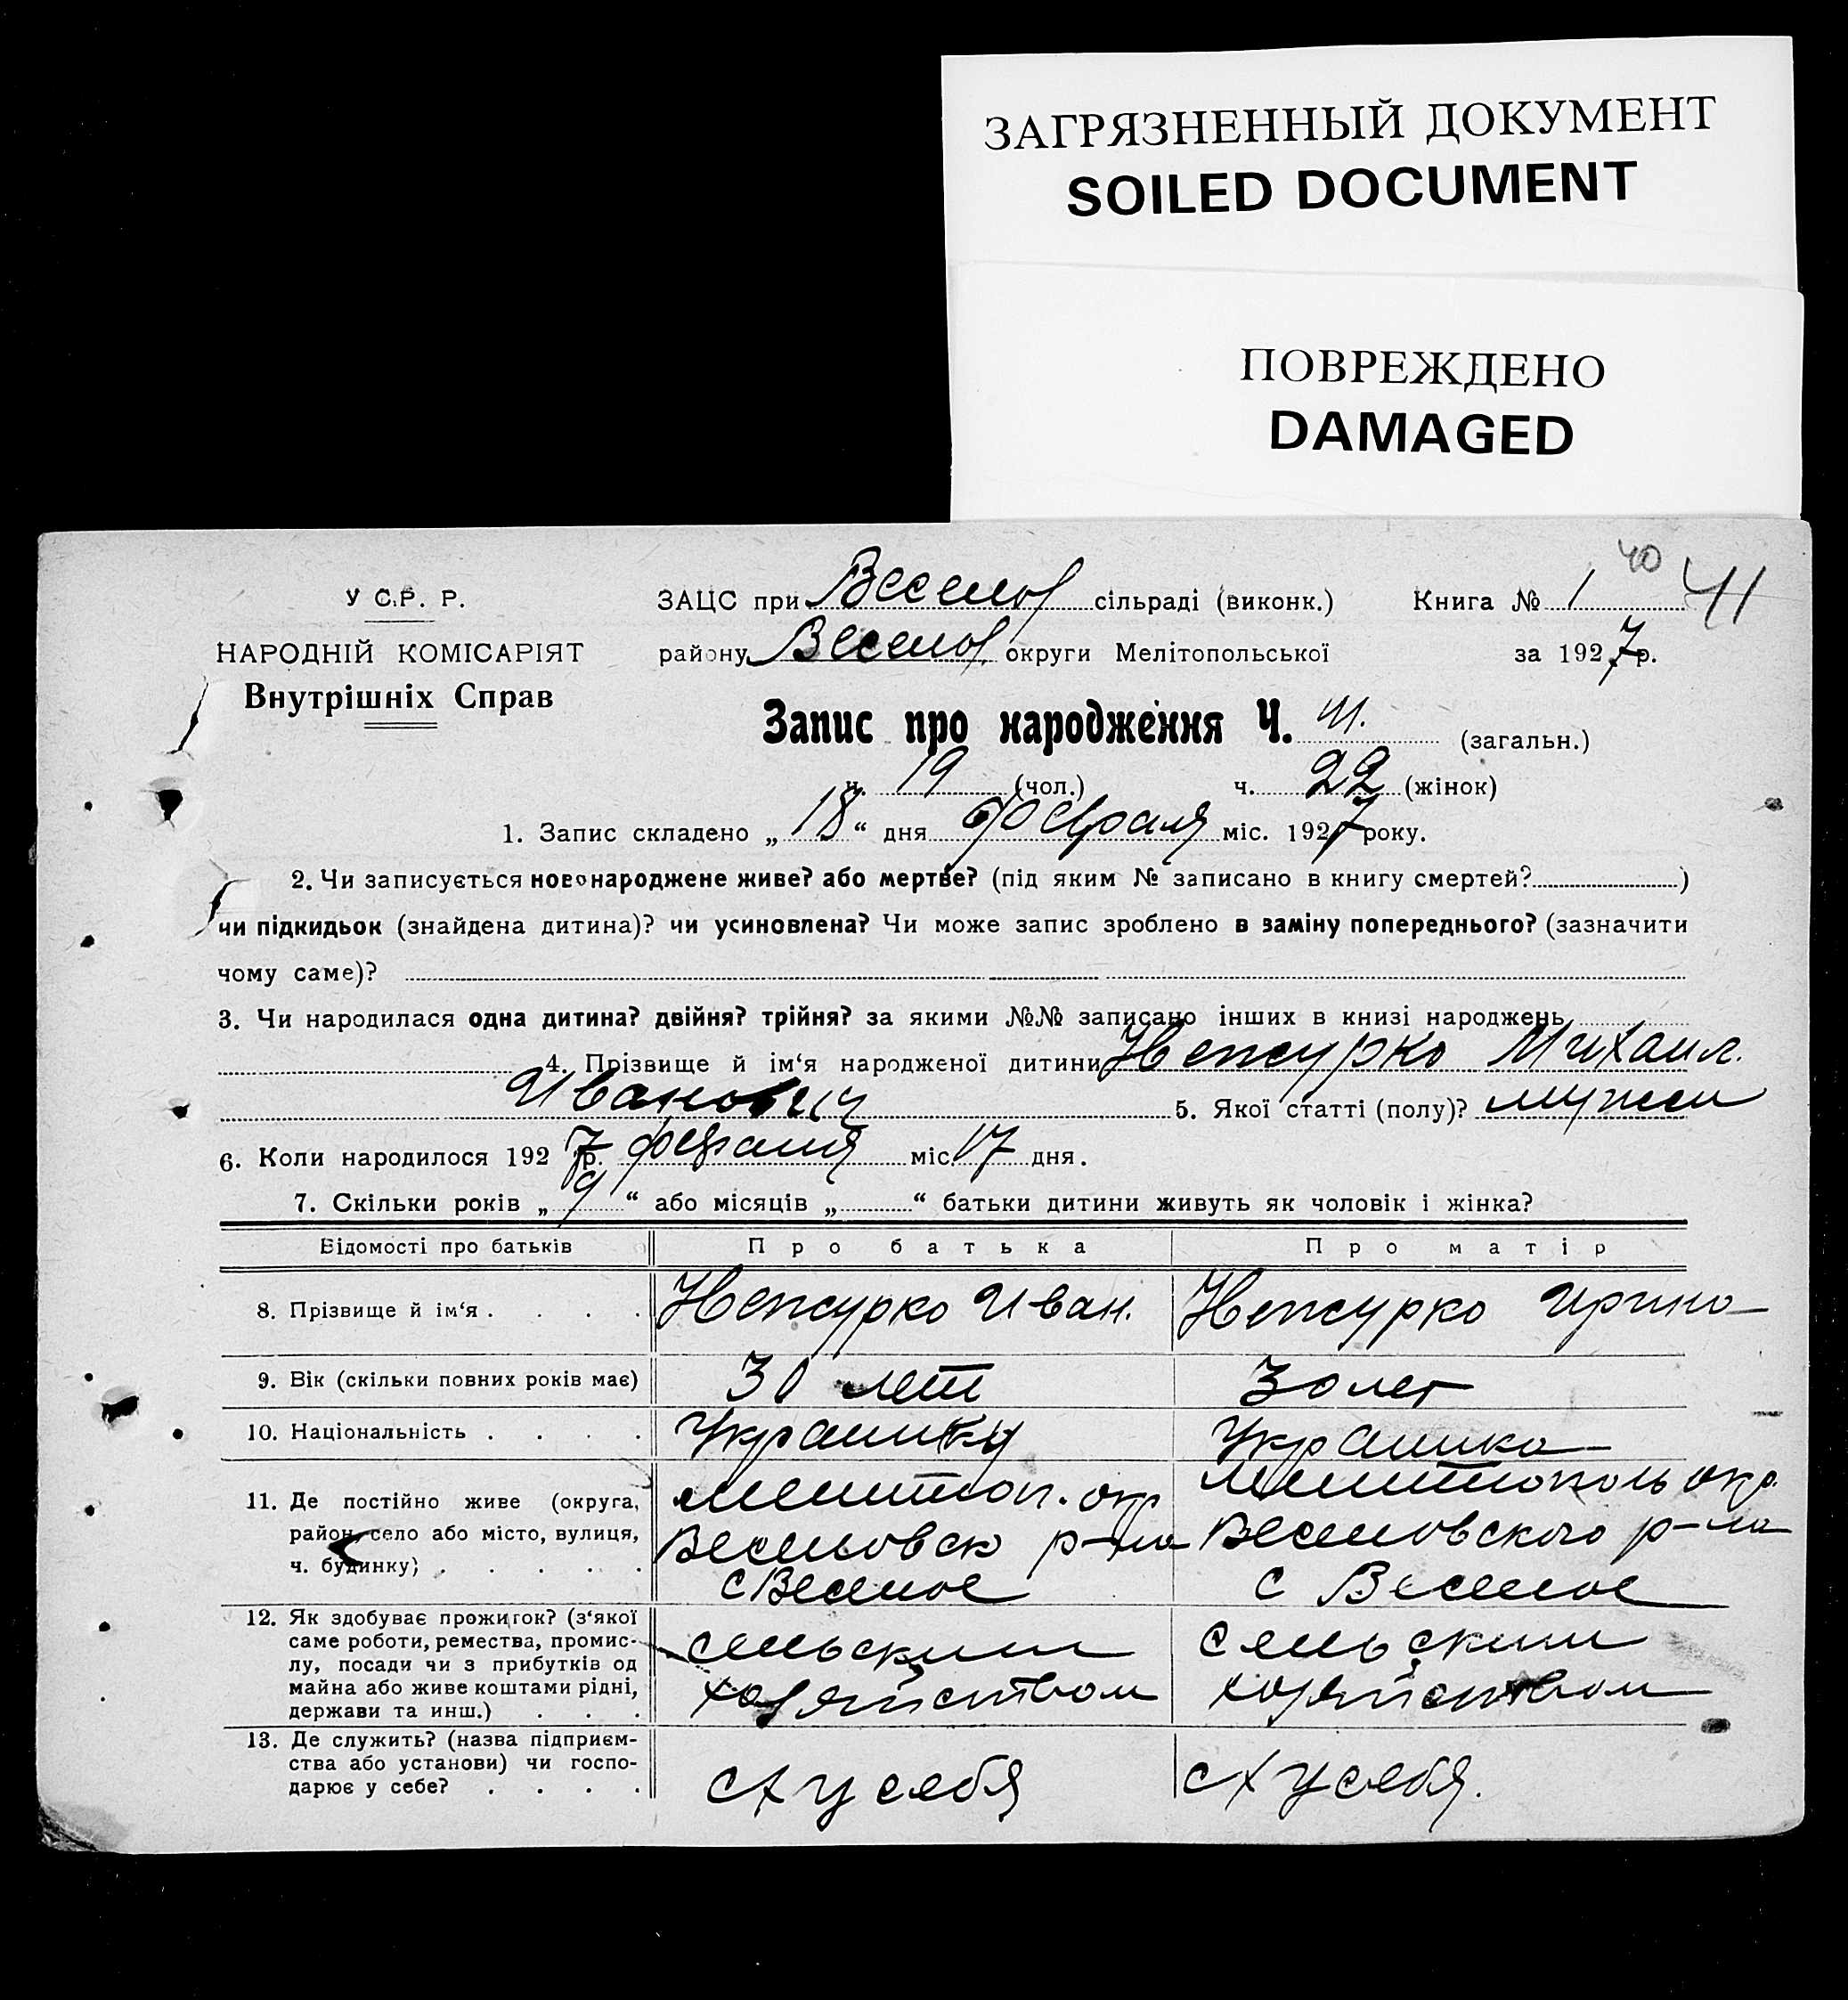 ЗАГРЯЗНЕННЫЙ ДОКУМЕНТ
SOILED DOCUMENT
ПОВРЕЖДЕНО
DAMAGED
40
У С.Р. Р. ЗАЦС при Веселов сільраді (виконк.) Книга № 1 41
НАРОДНІЙ КОМІСАРІЯТ району Веселов. округи Мелітопольської за 1927 р.
Внутрішніх Справ
Запис про народження Ч. 41. (загальн.)
ч. 19 (чол.) ч. 22 (жінок)
1. Запис складено „18“ дня Февраля міс. 1927 року.
2. Чи записується новонароджене живе? або мертве? (під яким № записано в книгу смертей? )
чи підкидьок (знайдена дитина)? чи усиновлена? Чи може запис зроблено в заміну попереднього? (зазначити
чому саме)?
3. Чи народилася одна дитина? двійня? трійня? за якими №№ записано інших в книзі народжень
4. Прізвище й ім‘я народженої дитини Непсурко Михаил.
Иванович 5. Якої статті (полу)?
6. Коли народилося 1927 р. февраля міс. 17 дня.
7. Скільки років „9“ або місяців „ “ батьки дитини живуть як чоловік і жінка?
Відомості про батьків Про батька Про матір
8. Прізвище й ім‘я . . . . Иван. Ирина
9. Вік (скільки повних років має) 30 лет 30 лет
10. Національність . . . . Украинка
11. Де постійно живе (округа, Мелитоп. окр Мелитополь окр.
район, село або місто, вулиця, Веселовск р-на Веселовского р-на
ч. будинку) . . . . . с Веселое с Веселое
12. Як здобуває прожиток? (з‘якої
саме роботи, ремества, промис- сельским сельским
лу, посади чи з прибутків од
майна або живе коштами рідні, хозяйством хозяйством
держави та инш.) . . .
13. Де служить? (назва підприєм-
ства або установи) чи госпо-
дарює у себе? . . . . с/х у себя с/х у себя.